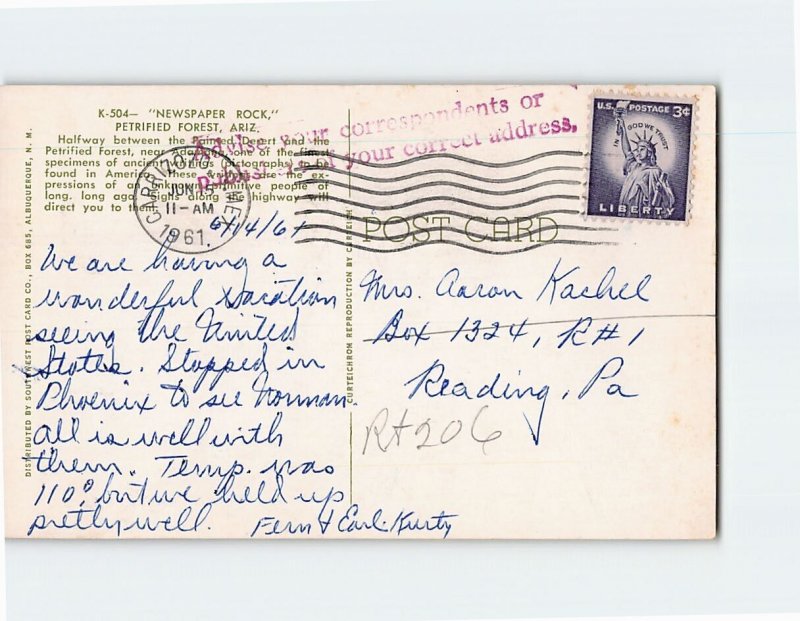 K-504— "NEWSPAPER ROCK,"
PETRIFIED FOREST, ARIZ.
Halfway between the Painted Desert and the
Petrified Forest, near Adamana, one of the finest
specimens of ancient writings (pictographs) to be
found in America. These writings are the ex-
pressions of an unknown primitive people of
long, long ago. Signs along the highway will
direct you to them.
6/14/61
We are having a
wonderful vacation
seeing the United
States. Stopped in
Phoenix to see Norman.
All is well with
them. Temp. was
110° but we held up
pretty well.
Fern & Earl Kurtz
DISTRIBUTED BY SOUTHWEST POST CARD CO., BOX 685, ALBUQUERQUE, N. M.
CURTEICHROM REPRODUCTION BY CURTEICH
CARRIZOZO N. MEX.
JUN 15
11-AM
1961.
your correspondents or
of your correct address.
U.S. POSTAGE 3¢
IN GOD WE TRUST
LIBERTY
POST CARD
Mrs. Aaron Kachel
Box 1324, R#1
Reading, Pa
Rt 206